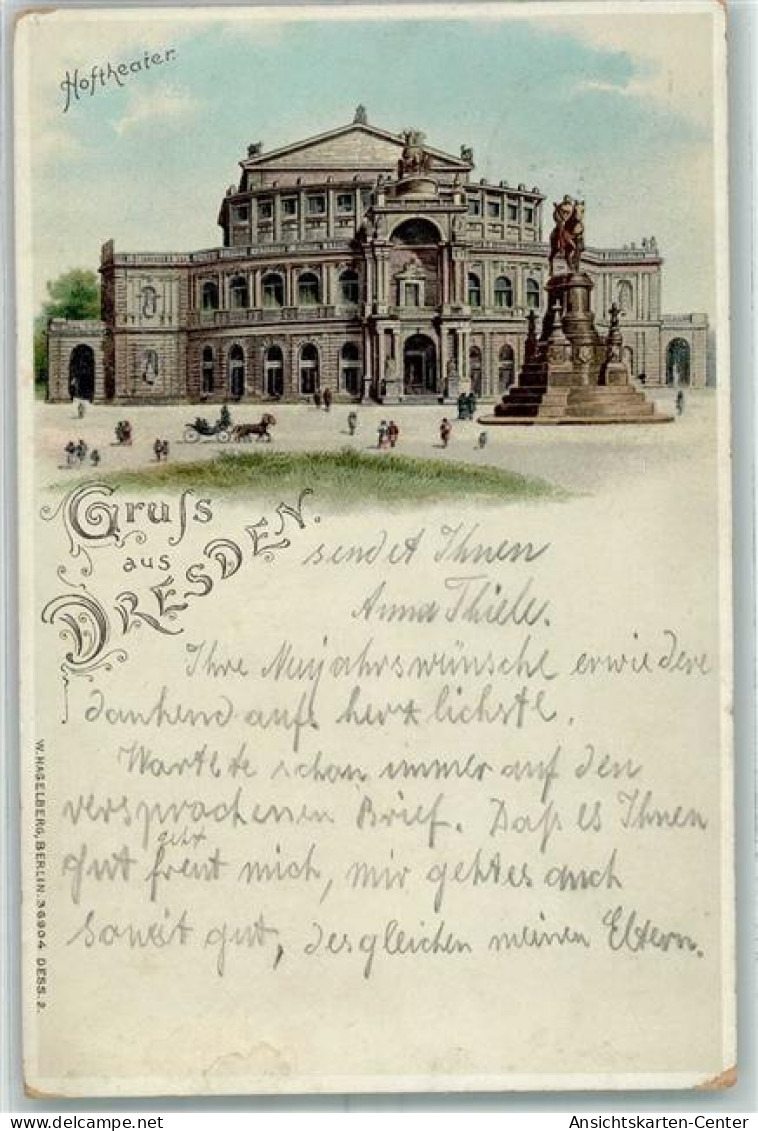 Hoftheater.
Gruss
aus
DRESDEN.
sendet Ihnen
Anna Thiele.
Ihre Neujahrswünsche erwiedere
dankend aufs herzlichste.
Wartete schon immer auf den
versprochenen Brief. Daß es Ihnen
geht
gut freut mich, mir geht es auch
soweit gut, desgleichen meinen Eltern.
W. HAGELBERG, BERLIN. 36904 DESS. 2.
Ansichtskarten-Center